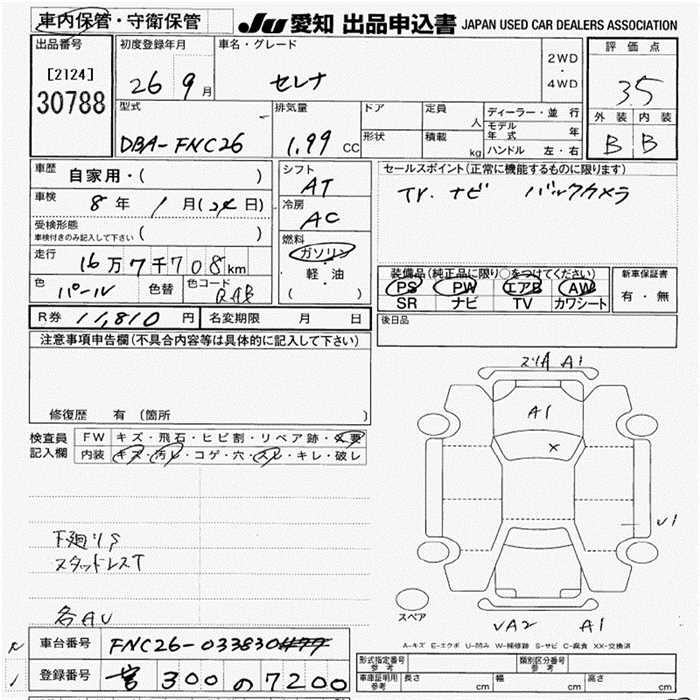 車内保管・守衛保管 JU 愛知 出品申込書 JAPAN USED CAR DEALERS ASSOCIATION
出品番号 初度登録年月 車名・グレード 2WD・4WD 評価点
[2124] 26 9月 セレナ 3.5
30788 型式 排気量 ドア 定員 人 ディーラー・並行 外装 内装
DBA-FNC26 1.99 CC 形状 積載 kg モデル年式 年 B B
ハンドル 左・右
車歴 自家用・( ) シフト セールスポイント(正常に機能するものに限ります)
AT TV.ナビ バックカメラ
車検 8年 1月(24日) 冷房
AC
受検形態
車検付きのみ記入して下さい ( ) 燃料
走行 16万7千708km ガソリン 装備品(純正品に限り○をつけてください) 新車保証書
軽・油 PS PW エアB AW 有・無
色 パール 色替 色コード QAB ( ) SR ナビ TV カワシート
R券 11,810円 名変期限 月 日 後日品
注意事項申告欄(不具合内容等は具体的に記入して下さい)
修復歴 有(箇所 )
検査員 FW キズ・飛石・ヒビ割・リペア跡・X要
記入欄 内装 キズ・汚レ・コゲ・穴・スレ・キレ・破レ
A1
A1
X
U1
下廻りS
スタッドレスT
各AU
スペア
VA2 A1
A-キズ E-エクボ U-凹み W-補修跡 S-サビ C-腐食 XX-交換済
車台番号 FNC26-033830
登録番号 300 の 7200
形式指定番号 参考 類別区分番号 参考
車庫証明用 参考 長さ cm 幅 cm 高さ cm